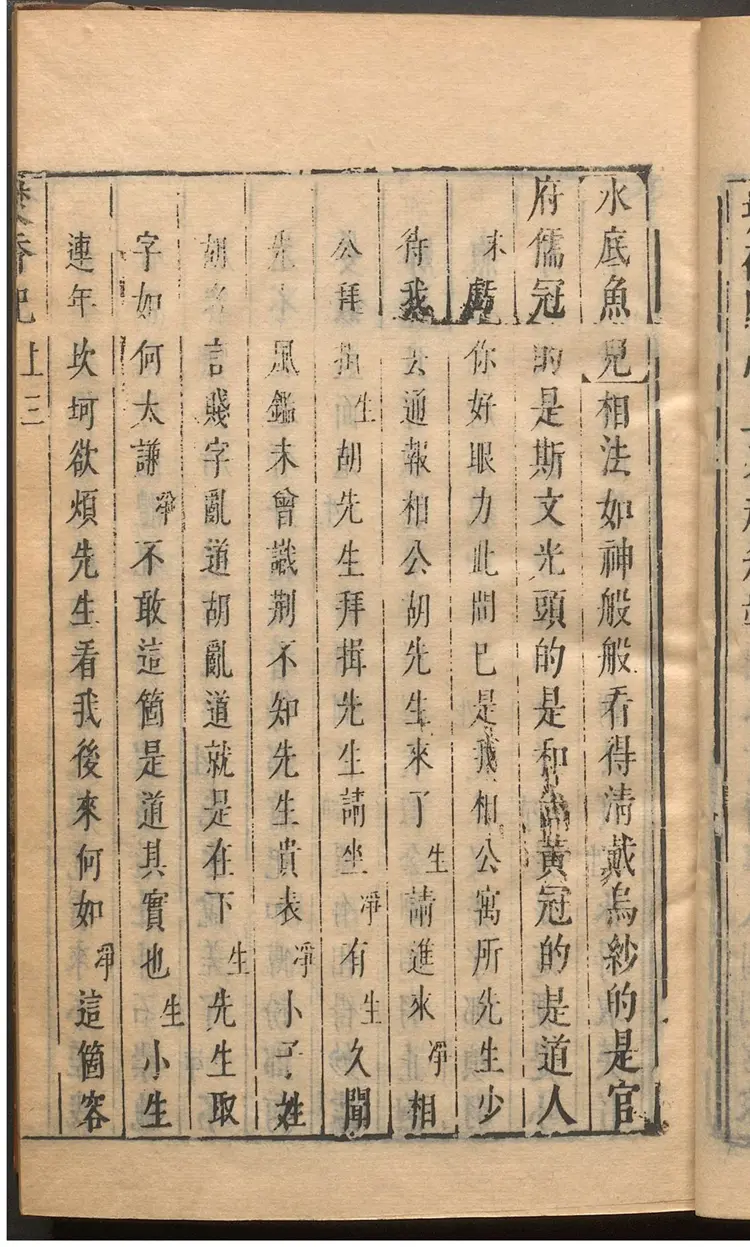 水底魚兒相法如神般般看得清戴烏紗的是官
府儒冠的是斯文光頭的是和尚黃冠的是道人
末戲你好眼力此間已是我相公寓所先生少
待我去通報相公胡先生來了生請進來淨相
公拜揖生胡先生拜揖先生請坐淨有生久聞
先生風鑑未曾識荆不知先生貴表淨小子姓
胡名言賤字亂道胡亂道就是在下生先生取
字如何太謙淨不敢這箇是道其實也生小生
連年坎坷欲煩先生看我後來何如淨這箇容
香記 上 三